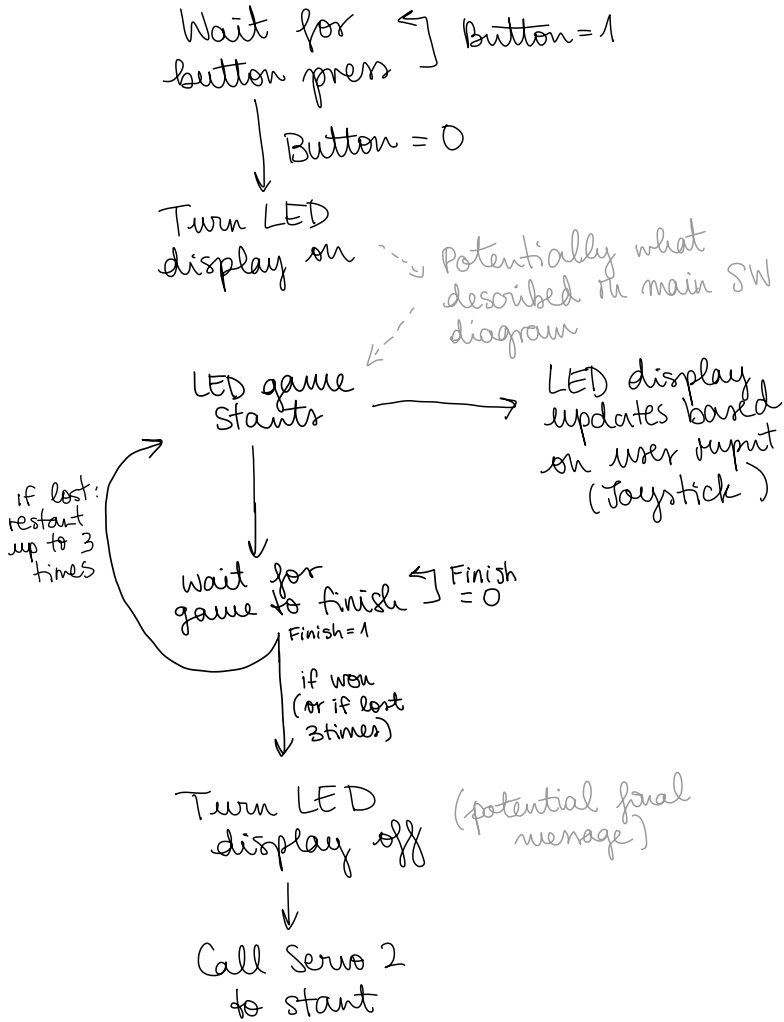 Wait for
button press
Button = 1
Button = 0
Turn LED
display on
Potentially what
described in main SW
diagram
LED game
starts
LED display
updates based
on user input
(Joystick)
if lost:
restart
up to 3
times
wait for
game to finish
Finish
= 0
Finish = 1
if won
(or if lost
3 times)
Turn LED
display off
(potential final
message)
Call Servo 2
to start